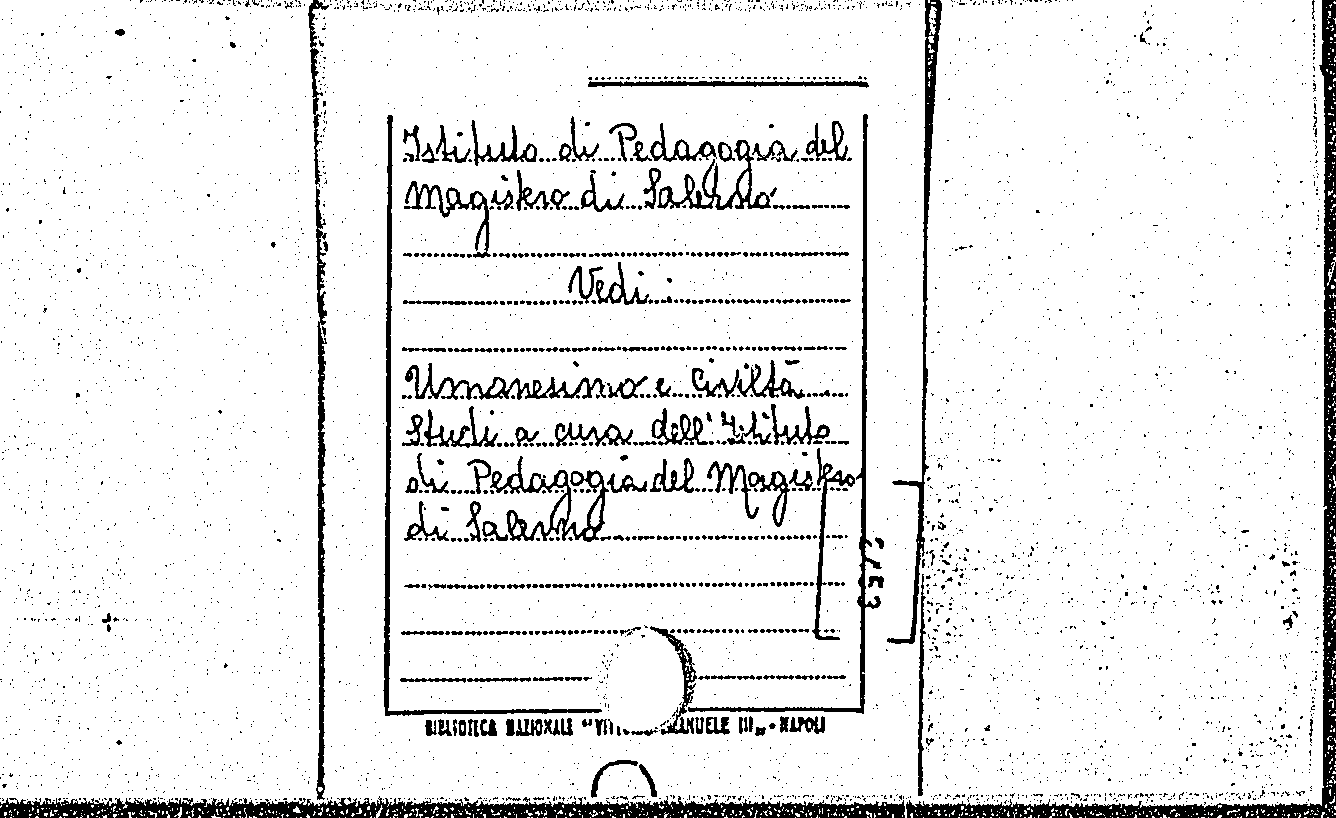 Istituto di Pedagogia del
Magistero di Salerno
Vedi:
Umanesimo e Civiltà
Studi a cura dell'Istituto
di Pedagogia del Magistero
di Salerno
BIBLIOTECA NAZIONALE "VITTORIO EMANUELE III" - NAPOLI